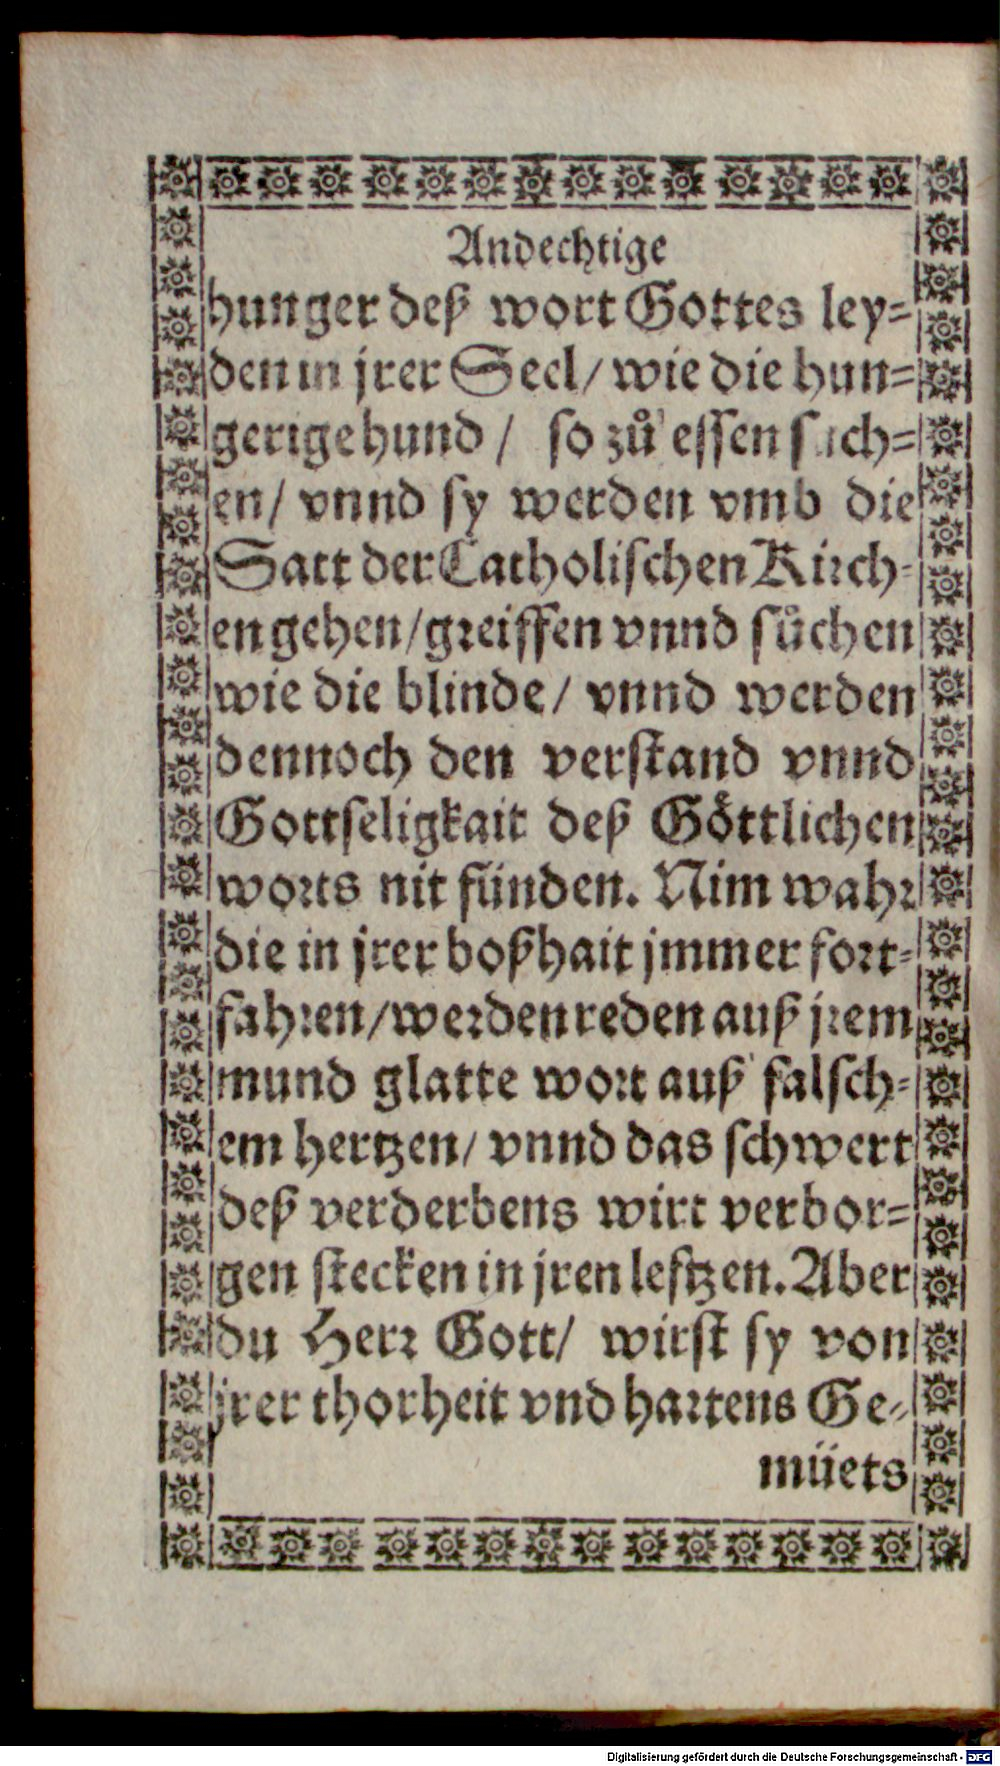 Andechtige
hunger deß wort Gottes ley=
den in jrer Seel/ wie die hun=
gerige hund / so zů essen such=
en/ vnnd sy werden vmb die
Satt der Catholischen Kirch=
en gehen/greiffen vnnd sůchen
wie die blinde/ vnnd werden
dennoch den verstand vnnd
Gottseligkait deß Göttlichen
worts nit fünden. Nim wahr
die in jrer boßhait jmmer fort=
fahren/werden reden auß jrem
mund glatte wort auß falsch=
em hertzen/ vnnd das schwert
deß verderbens wirt verbor=
gen stecken in jren lefftzen. Aber
du Herr Gott/ wirst sy von
jrer thorheit vnd hartens Ge=
müets
Digitalisierung gefördert durch die Deutsche Forschungsgemeinschaft - DFG